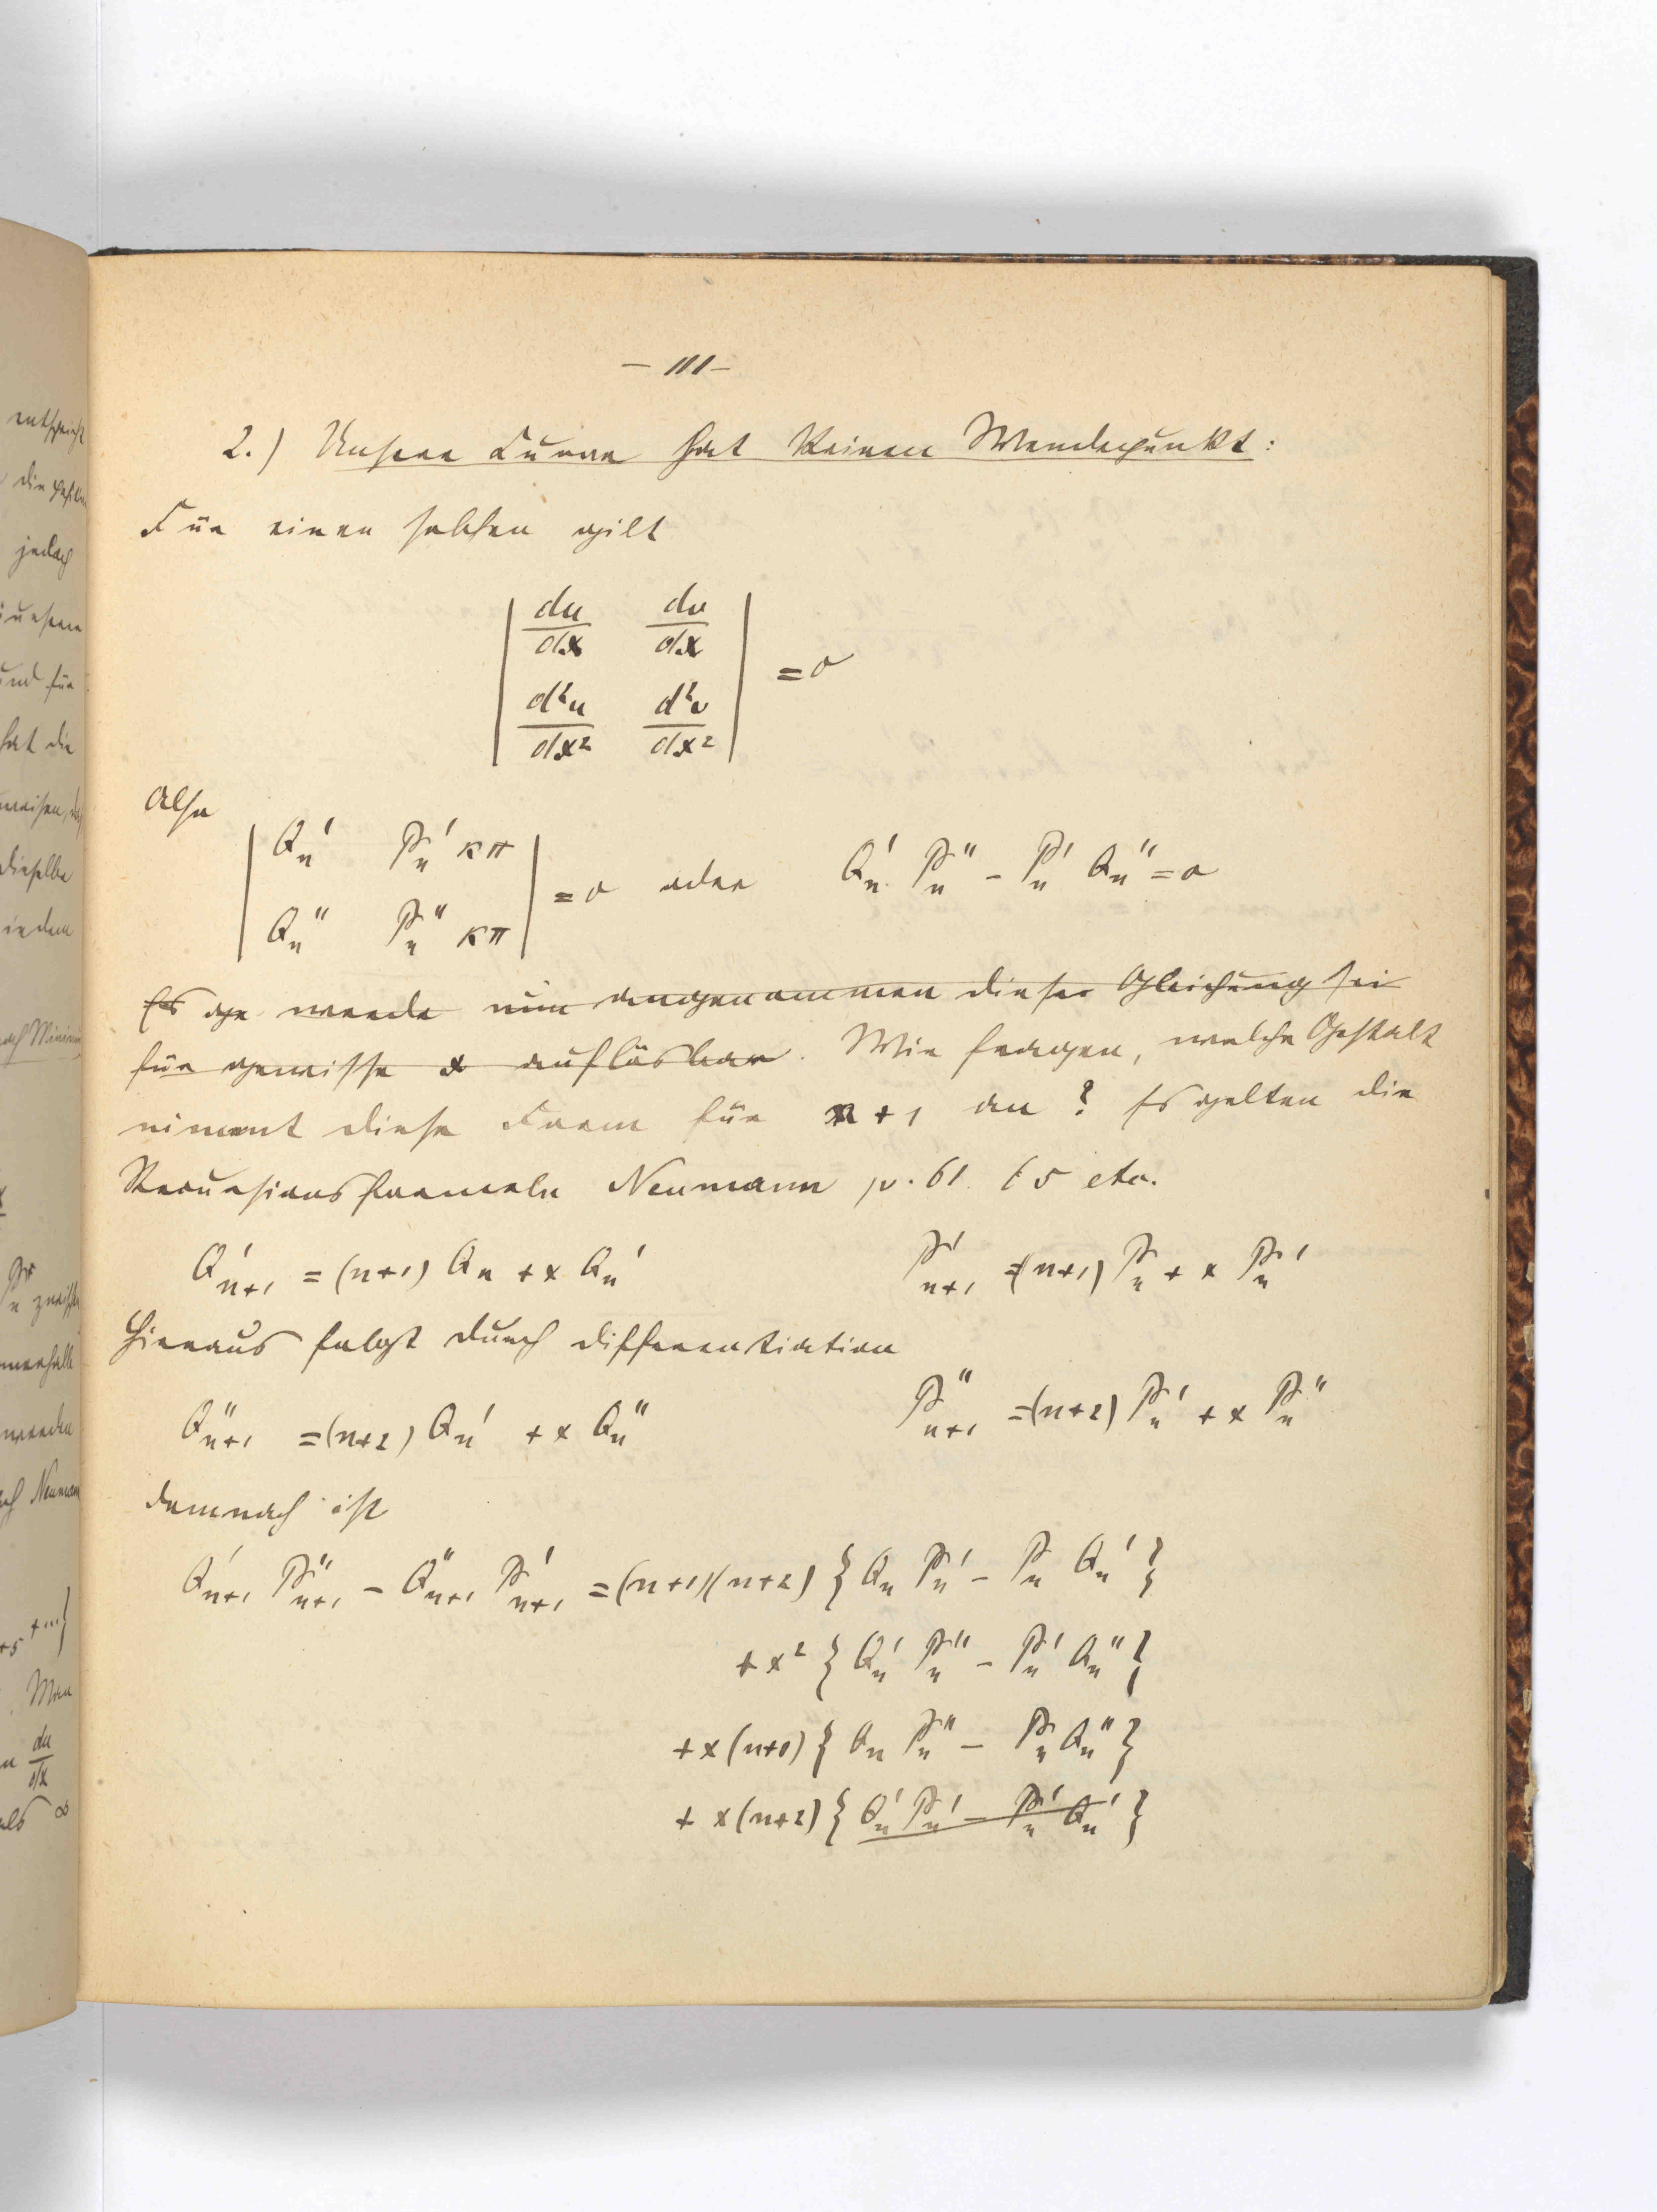 – 111 –
2.) Unsere Curve hat keinen Wendepunkt:
Für einen solchen gilt
| du/dx dv/dx |
| d²u/dx² d²v/dx² | = 0
Also
| Qn' Pn' κπ |
| Qn'' Pn'' κπ | = 0 oder Qn' Pn'' – Pn' Qn'' = 0
Es ge werde nun angenommen diese Gleichung sei
für gewisse x auflösbar. Wir fragen, welche Gestalt
nimmt diese Form für n+1 an? Es gelten die
Recursionsformeln Neumann p. 61. 65 etc.
Q'n+1 = (n+1) Qn + x Qn' P'n+1 = (n+1) Pn + x Pn'
Hieraus folgt durch differentiation
Q''n+1 = (n+2) Qn' + x Qn'' P''n+1 = (n+2) Pn' + x Pn''
demnach ist
Q'n+1 P''n+1 – Q''n+1 P'n+1 = (n+1)(n+2) { Qn Pn' – Pn Qn' }
+ x² { Qn' Pn'' – Pn' Qn'' }
+ x (n+1) { Qn Pn'' – Pn Qn'' }
+ x (n+2) { Qn' Pn' – Pn' Qn' }
entspricht
jedoch
unsere
und für
hat die
dieselbe
indem
Pn
werden
Neumann
+5 + ...}
Man
du/dx
als ∞